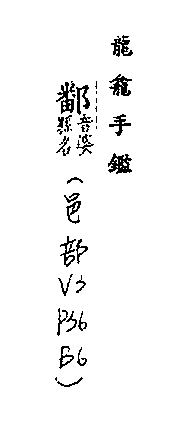 龍龕手鑑
鄱音婆縣名(邑部V3P36B6)